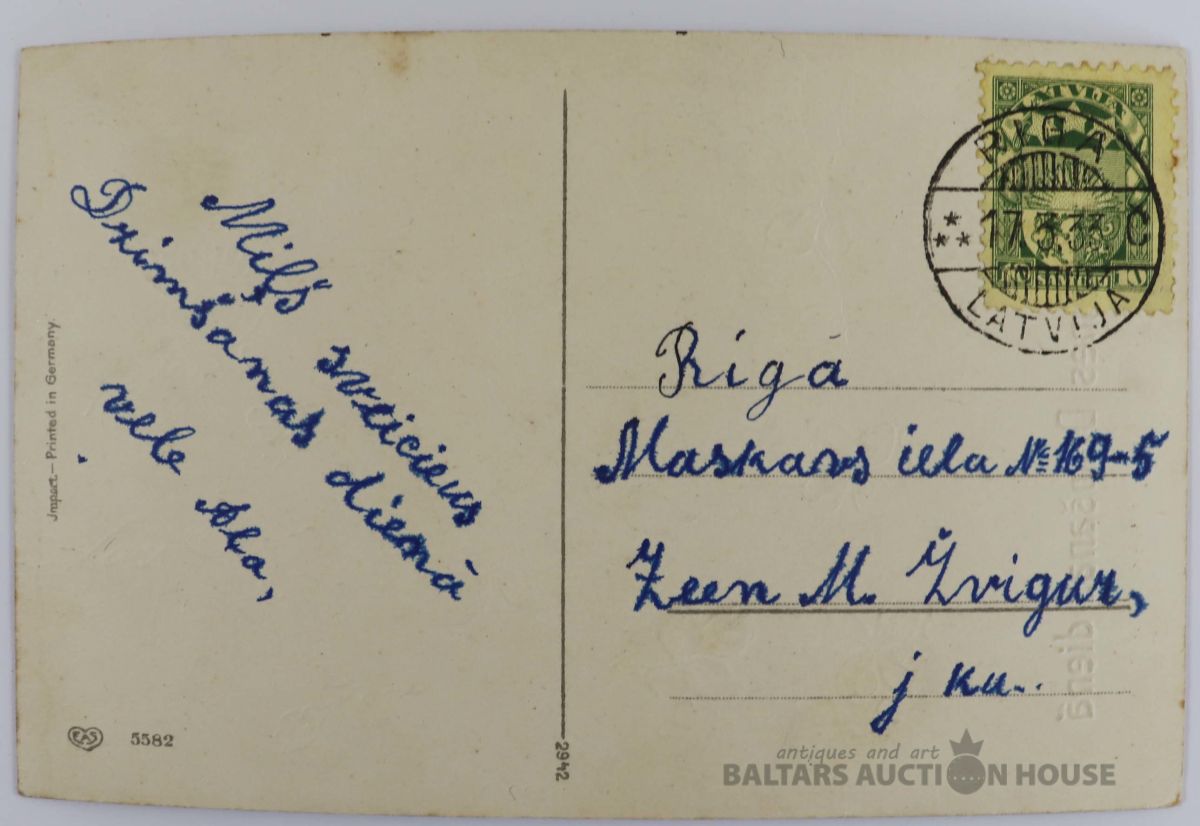 Miļš sveicieus
Dzimšanas dienā
velk Aka,
Jmport.— Printed in Germany.
EAS 5582
2942
LATVIJA
RIGA
17.3.33 C
LATVIJA
Rigā
Maskavs iela № 169-5
Zeen M. Žvigur,
j ku..
antiques and art
BALTARS AUCTION HOUSE